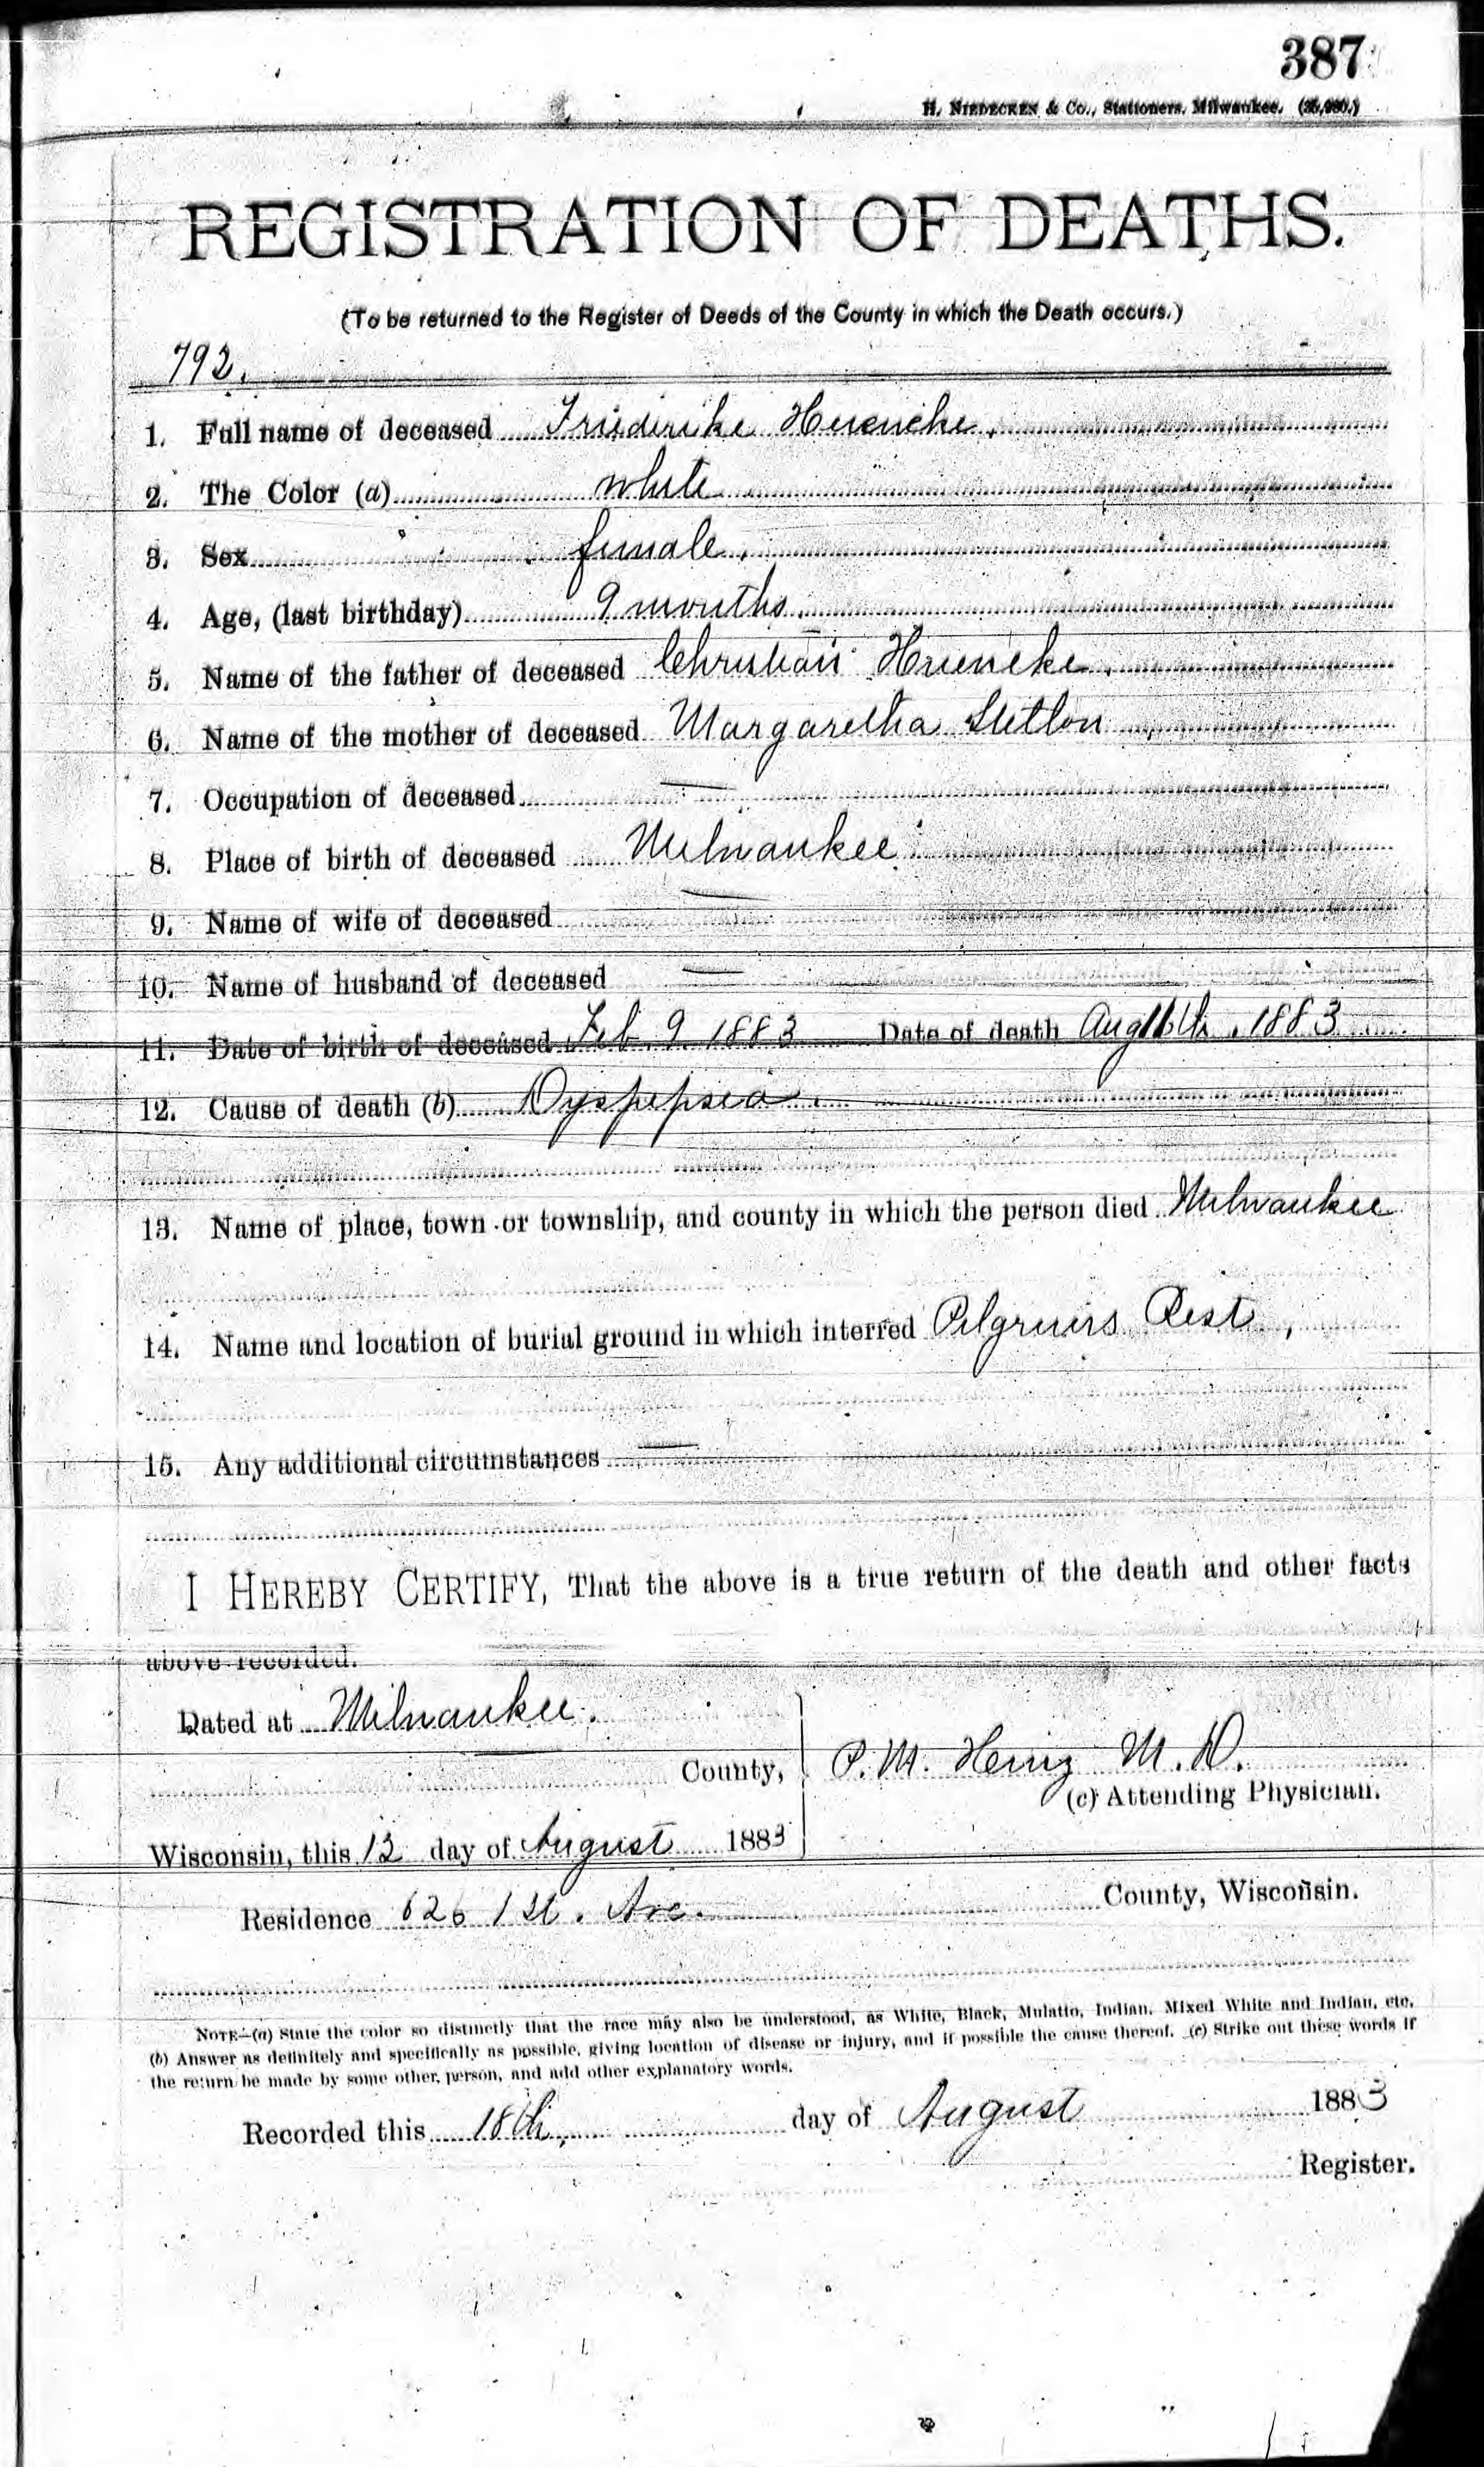 387
H. NIEDECKEN & Co., Stationers, Milwaukee.
REGISTRATION OF DEATHS.
(To be returned to the Register of Deeds of the County in which the Death occurs.)
792.
1. Full name of deceased Friederike Huencke.
2. The Color (a) white
3. Sex female.
4. Age, (last birthday) 9 months.
5. Name of the father of deceased Christian Huencke.
6. Name of the mother of deceased Margaretha
7. Occupation of deceased —
8. Place of birth of deceased Milwaukee
9. Name of wife of deceased —
10. Name of husband of deceased —
11. Date of birth of deceased Feb. 9 1883 Date of death Aug 1883
12. Cause of death (b) Dyspepsia.
13. Name of place, town or township, and county in which the person died Milwaukee
14. Name and location of burial ground in which interred Pilgrims Rest,
15. Any additional circumstances —
I HEREBY CERTIFY, That the above is a true return of the death and other facts
above recorded.
Dated at Milwaukee.
County, P. M. Heinz M. D.
(c) Attending Physician.
Wisconsin, this 12 day of August 1883
Residence 626 1st. Ave. County, Wisconsin.
NOTE—(a) State the color so distinctly that the race may also be understood, as White, Black, Mulatto, Indian, Mixed White and Indian, etc.
(b) Answer as definitely and specifically as possible, giving location of disease or injury, and if possible the cause thereof. (c) Strike out these words if
the return be made by some other, person, and add other explanatory words.
Recorded this 18th, day of August 1883
Register.